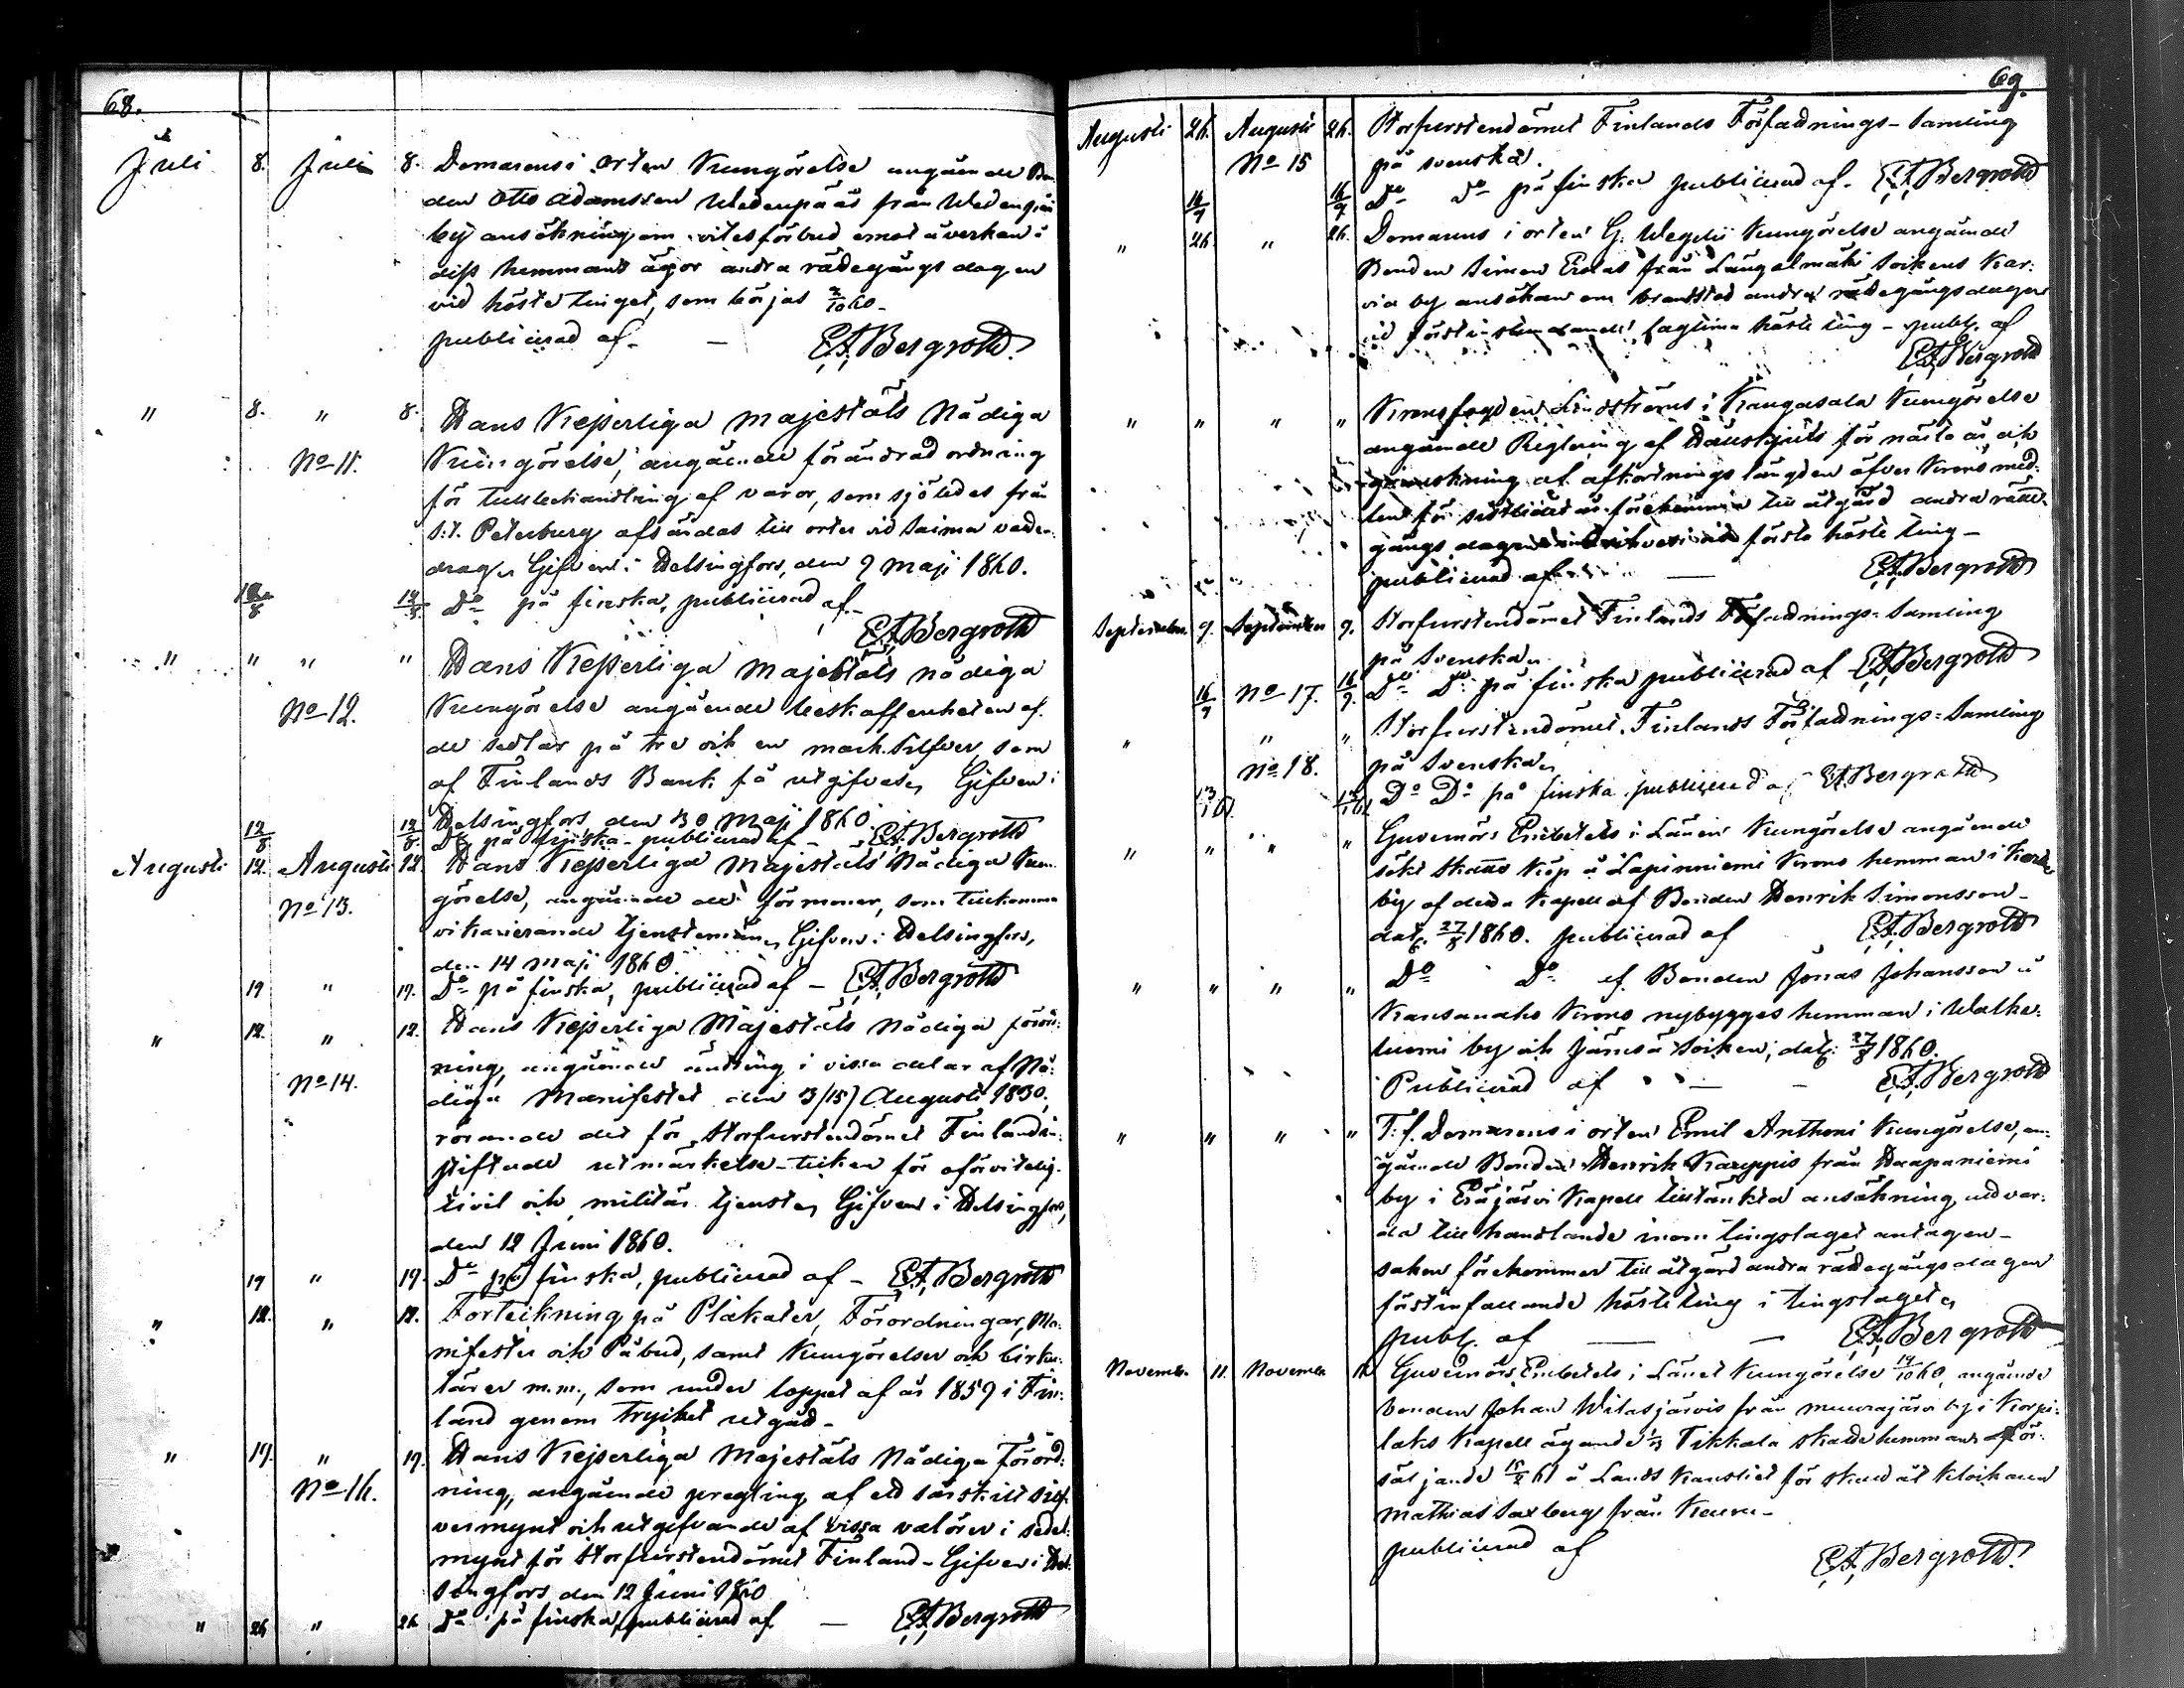 68.
Juli 8. Juli 8. Domarens i orten Kungörelse angående Bon-
den Otto Adamsson Wedenpää från Wedenpää
by ansökning om vitesförbud emot åverkan å
diss hemmans ägor andra rättegångs dagen
vid höste tinget, som börjas 2/10 60.
publicerad af - EA Bergroth.
" 8. " 8. Hans Kejserliga Majestäts Nådiga
No 11. Kungörelse, angående förändrad ordning
för tullbehandling af varor, som sjöledes från
S:t Petersburg afsändas till orter vid Saima vatten-
drag. Gifven i Helsingfors, den 9 Maji 1860.
12/8 12/8 Do på finska, publicerad af -
EA Bergroth
" " " " Hans Kejserliga Majestäts nådiga
No 12. Kungörelse angående beskaffenheten af
de sedlar på tre och en mark silfver, som
af Finlands Bank få utgifvas, Gifven i
Helsingfors den 30 Maji 1860
12/8 12/8 Do på finska publicerad af - EA Bergroth
Augusti 12. Augusti 12. Hans Kejserliga Majestäts Nådiga Kun-
No 13. görelse, angående de förmoner, som tillkomma
vikarierande tjenstemän, Gifven i Helsingfors,
den 14 Maji 1860.
19 " 19. Do på finska, publicerad af - EA Bergroth
" 12. " 12. Hans Kejserliga Majestäts Nådiga förord-
No 14. ning, angående ändring i vissa delar af Nå-
diga Manifestet den 3/15 Augusti 1830,
rörande det för Storfurstendömet Finland in-
stiftade utmärkelse-tecken för oförvitelig
civil och militär tjenst, Gifven i Helsingfors,
den 12 Juni 1860.
19 " 19. Do på finska, publicerad af - EA Bergroth
" 12. " 12. Förteckning på Plakater, Förordningar, Ma-
nifester och Påbud, samt Kungörelser och Cirku-
lärer m.m., som under loppet af år 1859 i Fin-
land genom trycket utgått -
" 19. " 19. Hans Kejserliga Majestäts Nådiga Förord-
No 16. ning, angående pregling af ett särskilt silf-
vermynt och utgifvande af vissa valörer i sedel-
mynt för Storfurstendömet Finland - Gifven i Hel-
singfors den 12 Juni 1860
" 26 " 26. Do på finska, publicerad af - EA Bergroth
69.
Augusti 26. Augusti 26. Storfurstendömet Finlands Författnings-Samling
No 15 på svenska.
16/9 16/9 Do Do på finska publicerad af - EA Bergroth
" 26 " 26. Domarens i orten G. Wegelii Kungörelse angående
Bonden Simon Erlas från Längelmäki Sockens Kar-
via by ansökan om brandstod andra rättegångsdagen
vid först instundande lagtima höste ting - publ. af
EA Bergroth
" " " " Kronofogden Lindströms i Kangasala Kungörelse
angående Reglering af Hållskjuts för nästa år, och
granskning af afkortnings längden öfver Krono med-
len för förekommer till åtgärd andra rätte-
gångs dagen första höste ting -
publicerad af - EA Bergroth
September 9. September 9. Storfurstendömet Finlands Författnings-Samling
på Svenska
16/9 No 17. 16/9. Do Do på finska publicerad af EA Bergroth
" " " Storfurstendömet Finlands Författnings-Samling
No 18. på Svenska
Do Do på finska publicerad af EA Bergroth
" " " " Guvernörs Embetets i Länen Kungörelse angående
sökt Skatte Köp å Lapinniemi Krono hemman i
by af detta Kapell af Bonden Henrik Simonsson -
dat. 27/8 1860. publicerad af EA Bergroth
" " " " Do Do af Bonden Jonas Johansson å
Kansanaho Krono nybygges hemman i
by och Jämsä Socken, dat. 27/8 1860.
Publicerad af - EA Bergroth
" " " " T.f. Domarens i orten Emil Anthoni Kungörelse, an-
gående Bonden Henrik Karppis från Haapaniemi
by i Eräjärvi Kapell tilltänkta ansökning, att var-
da till handlande inom tingslaget antagen -
saken förekommer till åtgärd andra rättegångs dagen
först infallande höste ting i tingslaget,
publ. af - EA Bergroth
Novemb. 11. Novemb. 11. Guvernörs Embetets i Länet Kungörelse 19/10 60, angående
bonden Johan Witasjärvis från Muurajärvi by i Korpi-
laks Kapell ägande 1/3 Tikkala skatte hemmans för-
säljande 15/2 61 å Lands Kansliet för skuld åt Klockaren
Mathias Saxberg från Keuru -
publicerad af EA Bergroth.